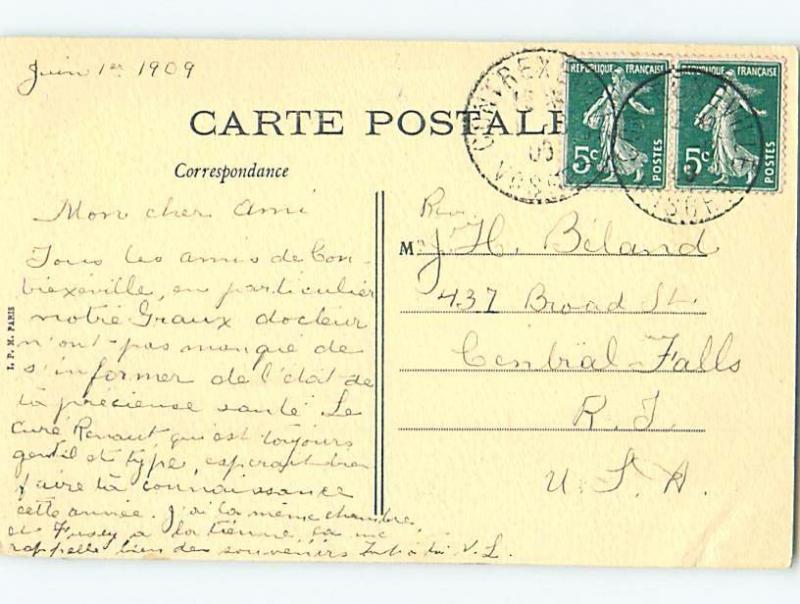 Juin 1er 1909
CARTE POSTALE
Correspondance
CONTREXEVILLE
VOSGES
REPUBLIQUE FRANÇAISE
5c
POSTES
REPUBLIQUE FRANÇAISE
5c
POSTES
Mon cher Ami
Tous les amis de Con-
trexéville, en particulier
notre Graux docteur
n'ont pas manqué de
s'informer de l'état de
ta précieuse santé Le
Curé Renaut, qui est toujours
gentil et type, espérait bien
faire ta connaissance
cette année. J'ai la même chambre,
et a la tienne, ça me
rappelle bien des souvenirs à toi V. L.
Rev.
M J. H. Béland
437 Broad St.
Central-Falls
R. I.
U. S. A.
L. P. M. PARIS